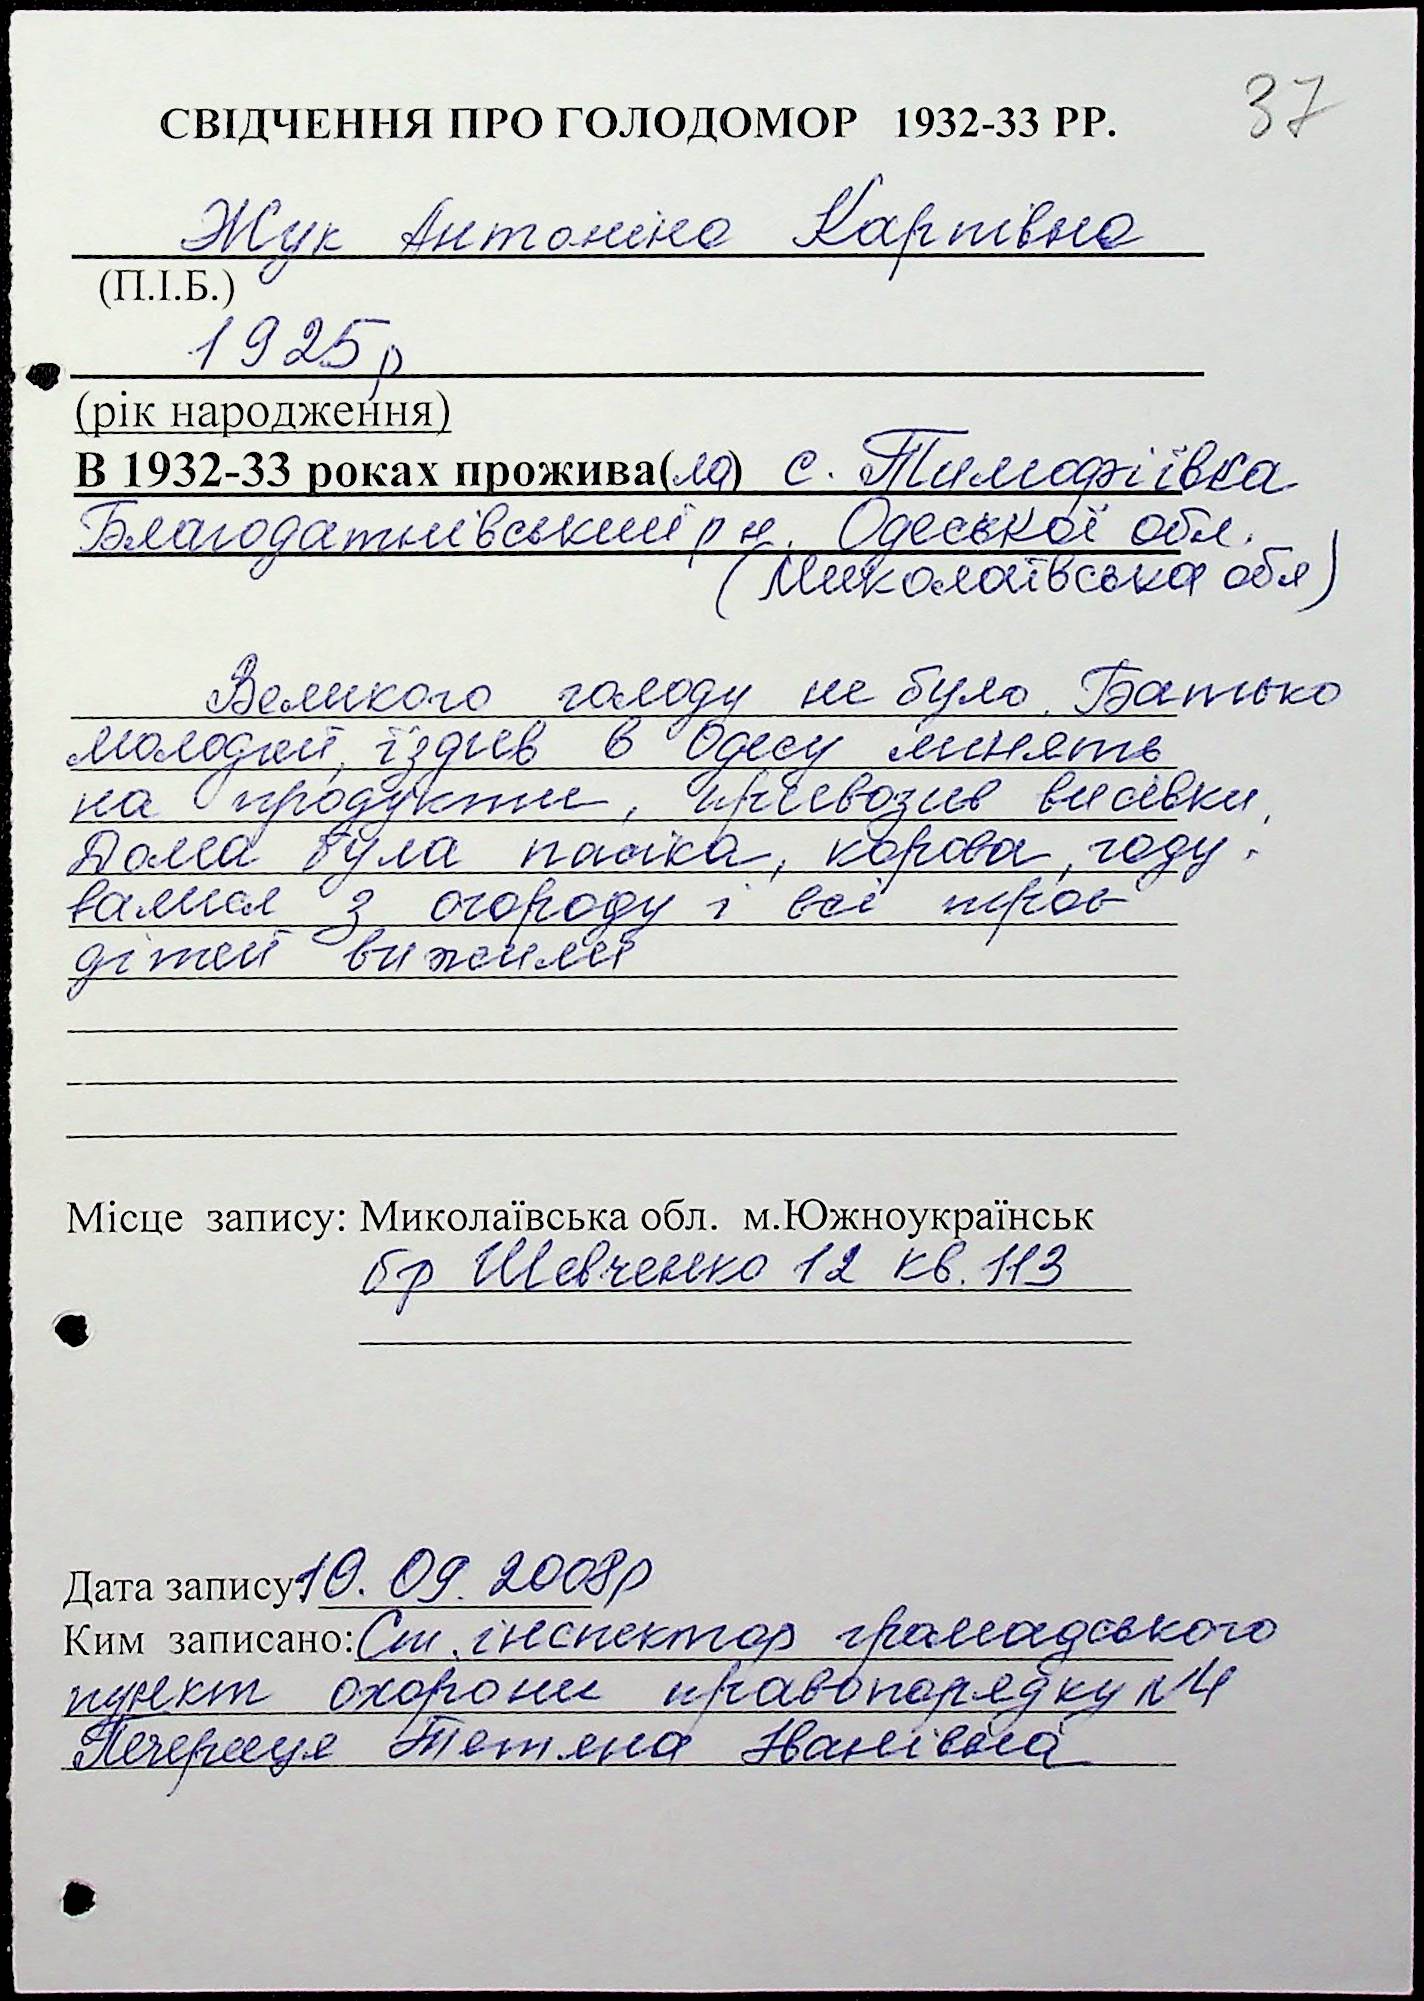 37
СВІДЧЕННЯ ПРО ГОЛОДОМОР 1932-33 РР.
Жук Антоніна Карпівна
(П.І.Б.)
1925р
(рік народження)
В 1932-33 роках прожива(ла) с. Тимофіївка
Благодатнівський р н. Одеської обл.
(Миколаївська обл)
Великого голоду не було. Батько
молодий, їздив в Одесу минять
на продукти, привозив висівки.
Дома була пасіка, корова, году-
вались з огороду і всі троє
дітей вижили
Місце запису: Миколаївська обл. м.Южноукраїнськ
бр Шевченко 12 кв. 113
Дата запису 10.09.2008р
Ким записано: Ст. інспектор громадського
пункт охорони правопорядку N4
Тетяна Іванівна